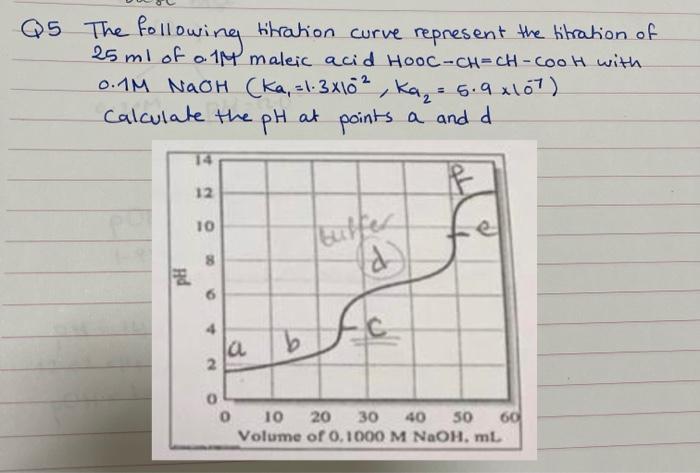 Q5 The following titration curve represent the titration of
25 ml of 0.1M maleic acid HOOC-CH=CH-COOH with
0.1M NaOH (Ka₁ =1.3x10⁻², Ka₂ = 5.9 x10⁻⁷)
Calculate the pH at points a and d
14
12
10
8
6
4
2
0
pH
f
buffer
e
d
c
a
b
0 10 20 30 40 50 60
Volume of 0.1000 M NaOH, mL